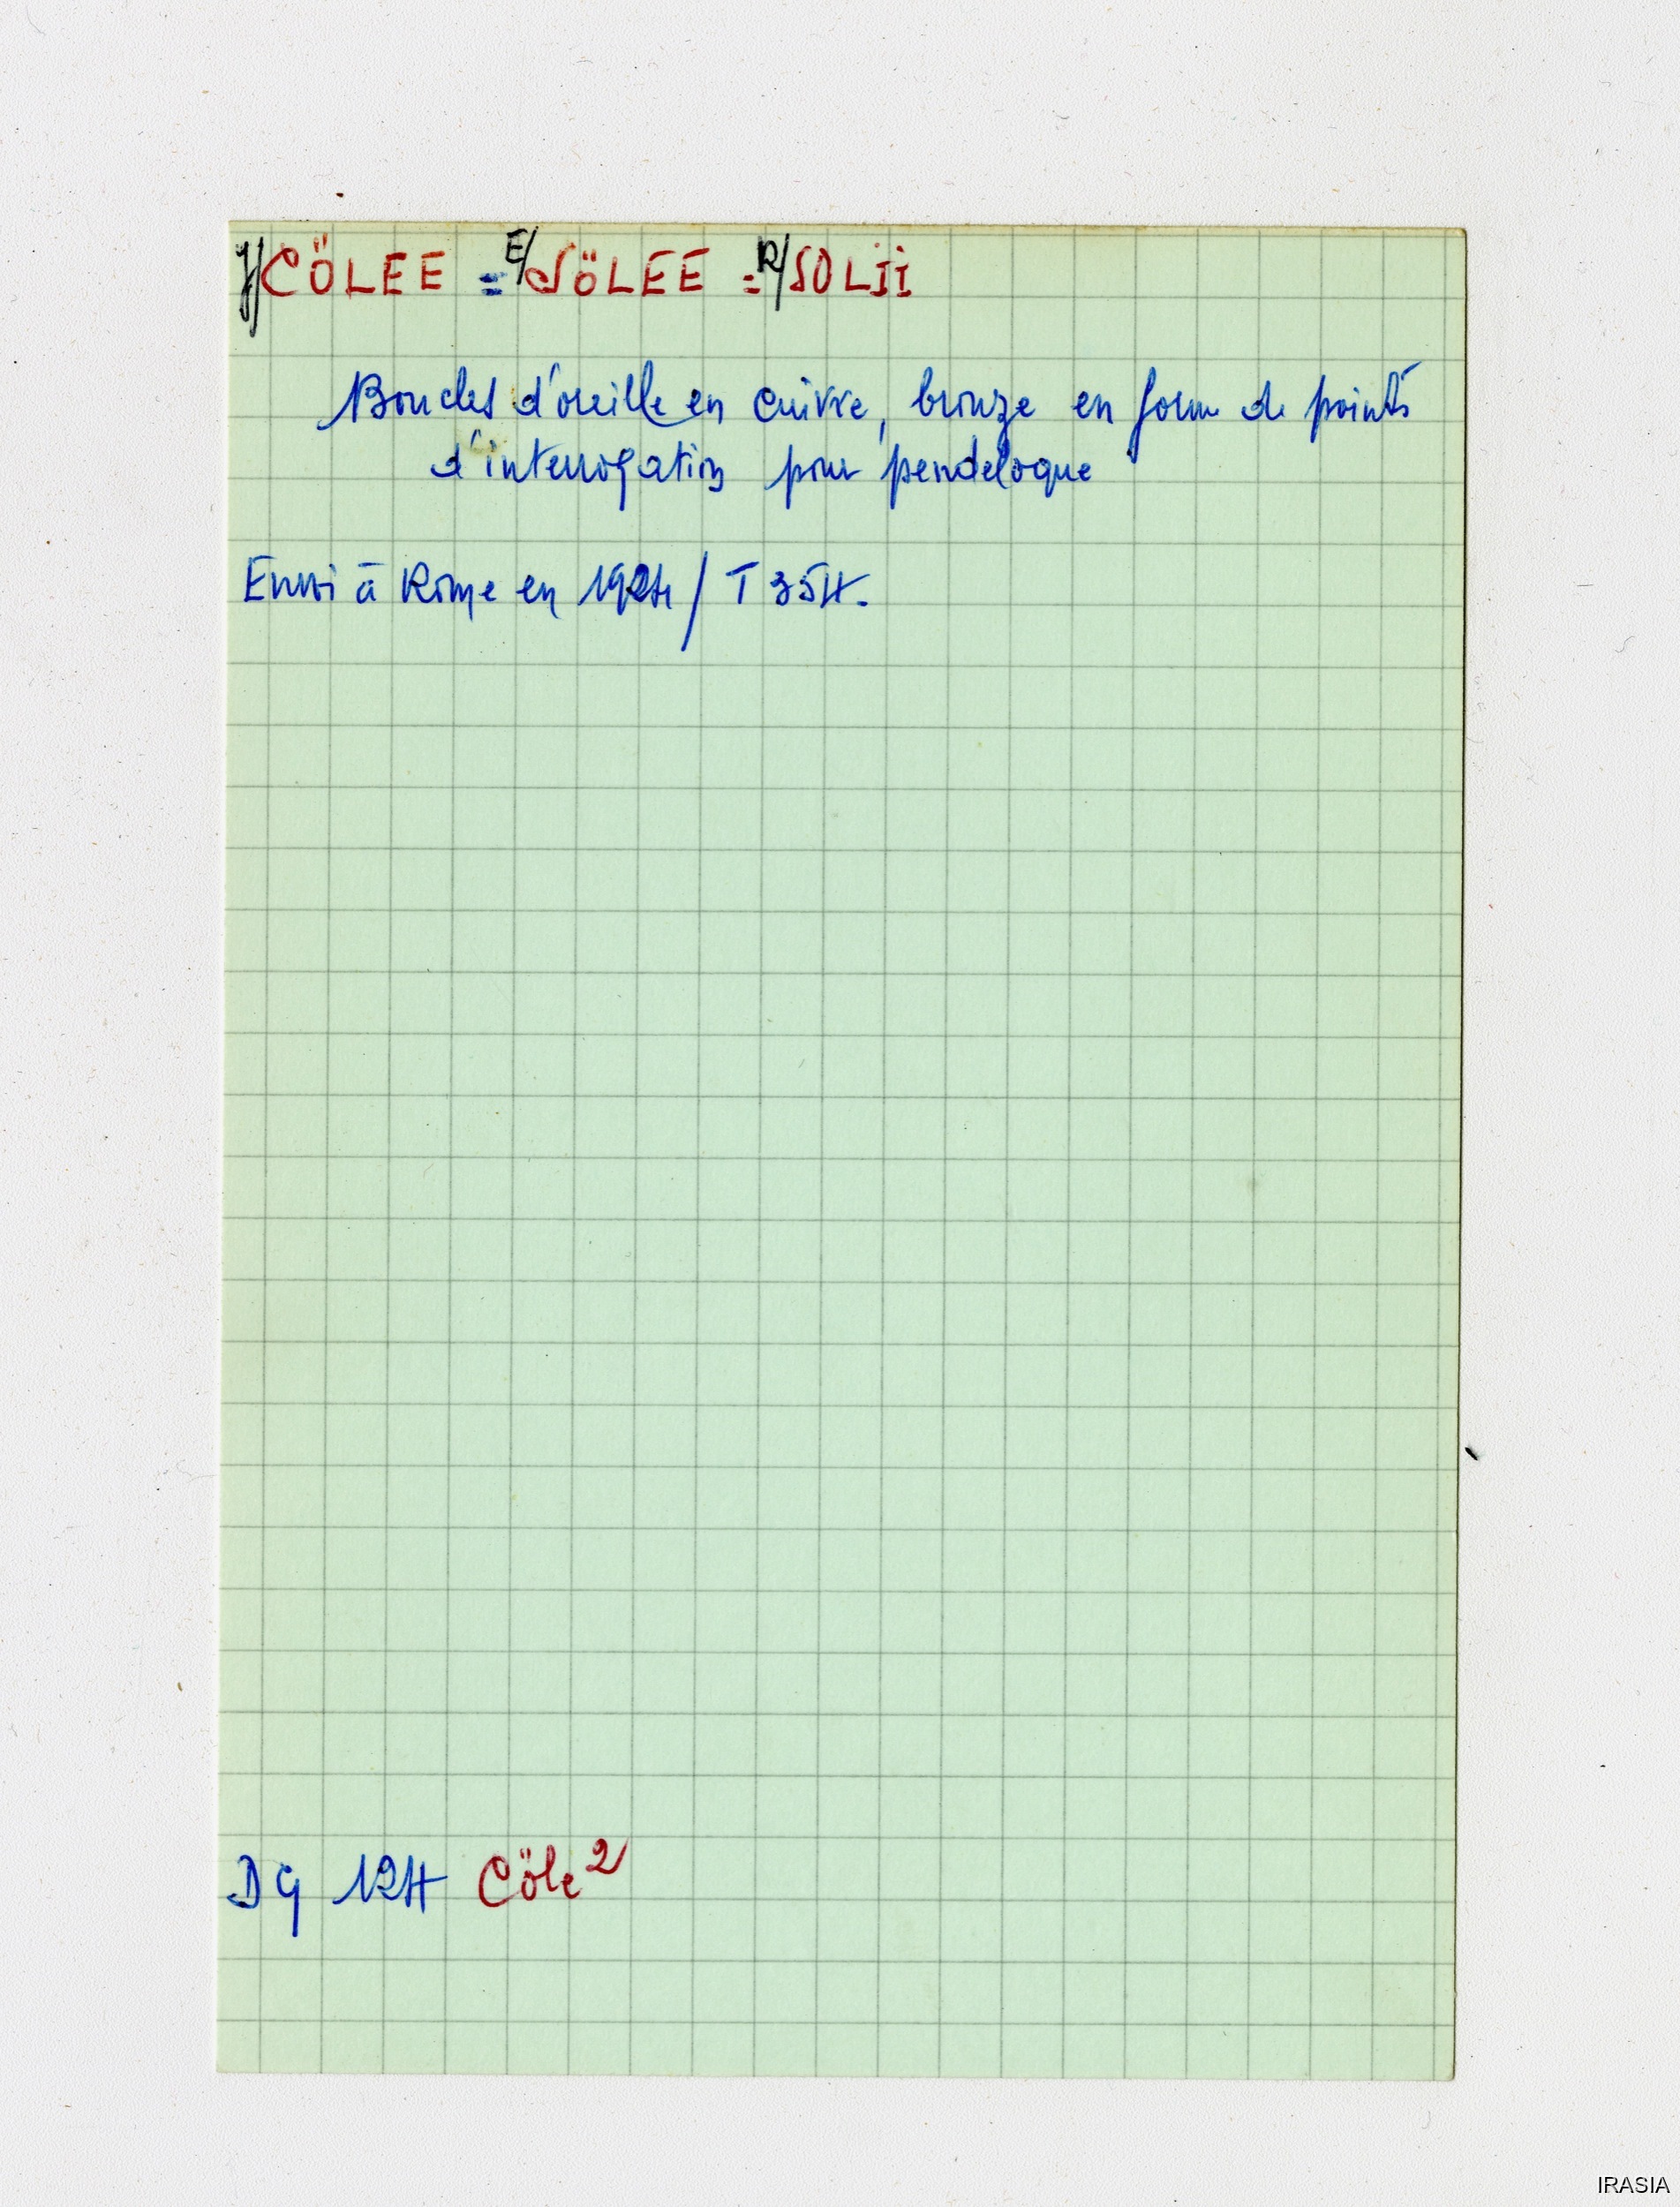 J/CÖLEE = E/SÖLEE = R/SOLII
Boucles d'oreille en cuivre, bronze en forme de points
d'interrogation pour pendeloque
Envoi à Rome en 1924 / T 354.
DG 124 Cöle 2
IRASIA